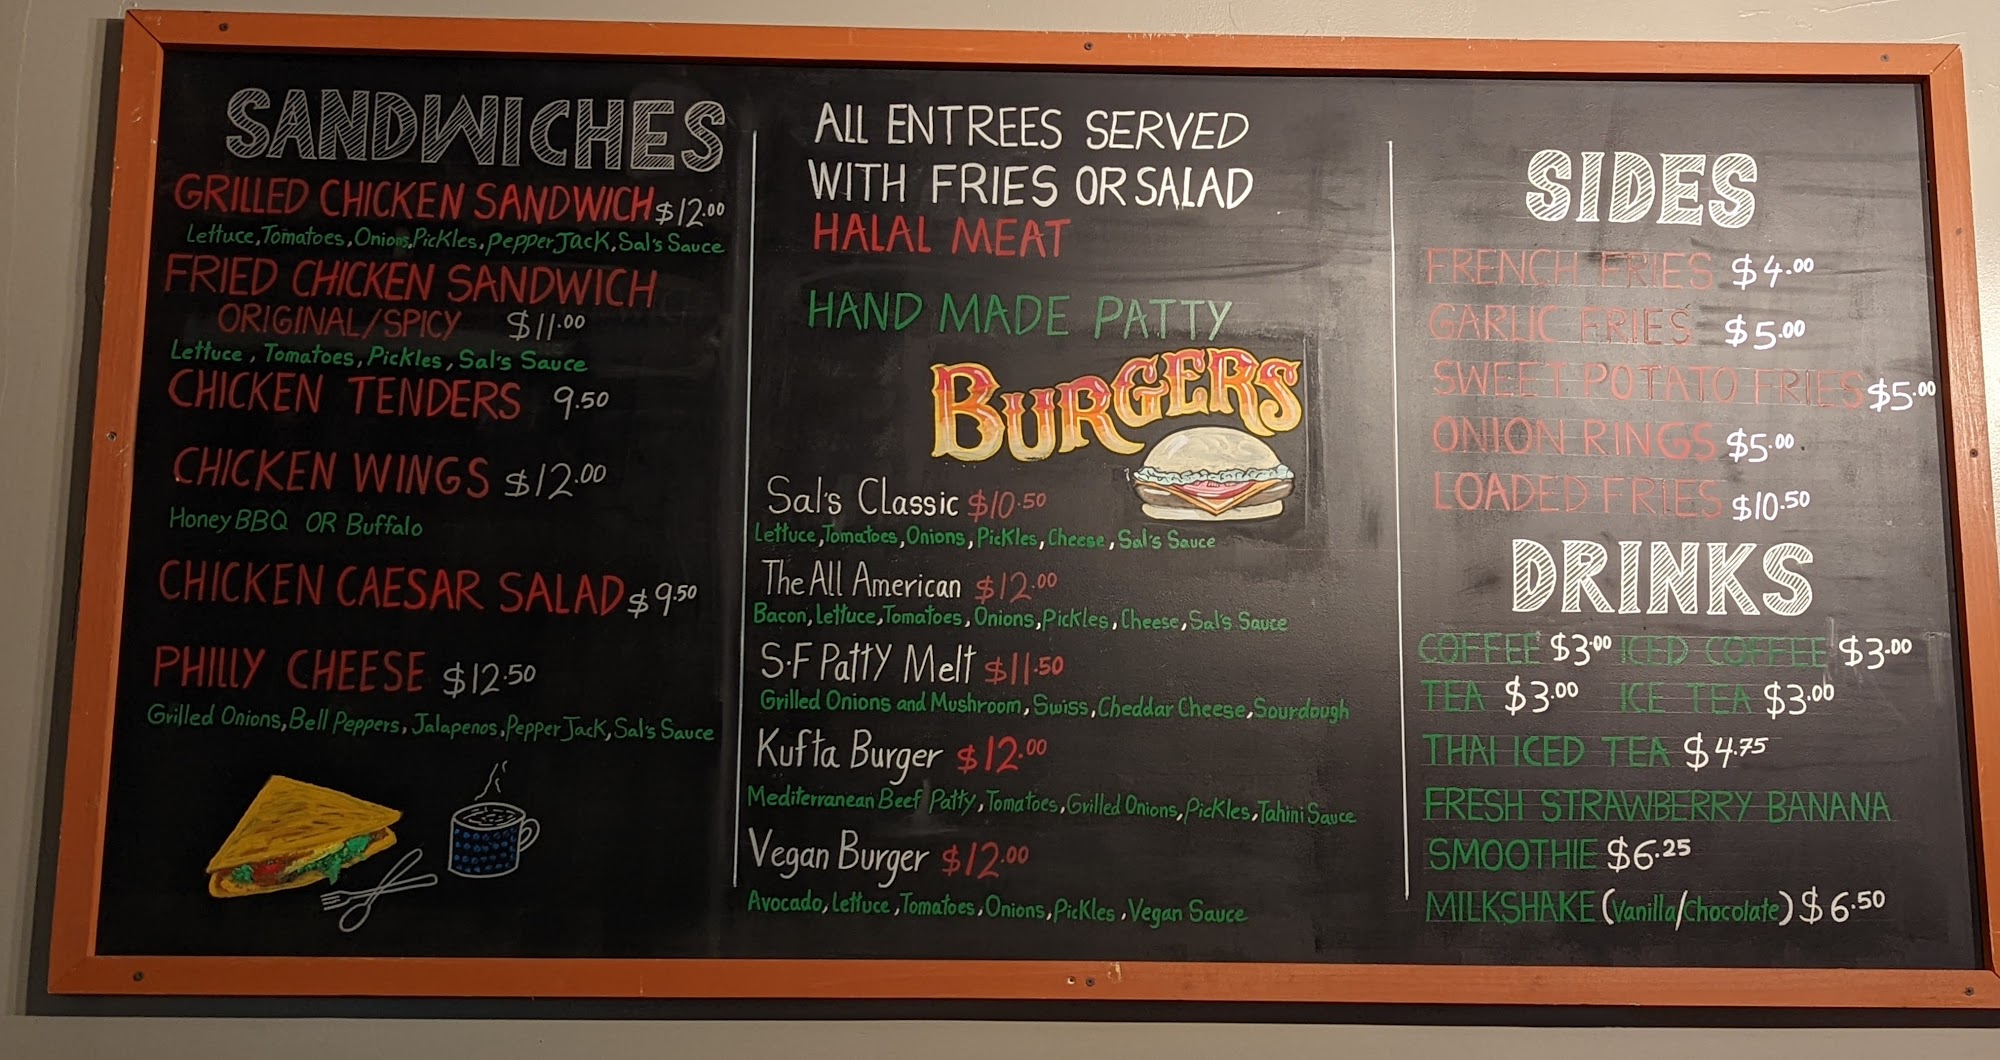 SANDWICHES
GRILLED CHICKEN SANDWICH $12.00
Lettuce, Tomatoes, Onions, Pickles, Pepper Jack, Sal's Sauce
FRIED CHICKEN SANDWICH
ORIGINAL/SPICY $11.00
Lettuce, Tomatoes, Pickles, Sal's Sauce
CHICKEN TENDERS 9.50
CHICKEN WINGS $12.00
Honey BBQ OR Buffalo
CHICKEN CAESAR SALAD $9.50
PHILLY CHEESE $12.50
Grilled Onions, Bell Peppers, Jalapenos, Pepper Jack, Sal's Sauce
ALL ENTREES SERVED
WITH FRIES OR SALAD
HALAL MEAT
HAND MADE PATTY
BURGERS
Sal's Classic $10.50
Lettuce, Tomatoes, Onions, Pickles, Cheese, Sal's Sauce
The All American $12.00
Bacon, Lettuce, Tomatoes, Onions, Pickles, Cheese, Sal's Sauce
S.F Patty Melt $11.50
Grilled Onions and Mushroom, Swiss, Cheddar Cheese, Sourdough
Kufta Burger $12.00
Mediterranean Beef Patty, Tomatoes, Grilled Onions, Pickles, Tahini Sauce
Vegan Burger $12.00
Avocado, Lettuce, Tomatoes, Onions, Pickles, Vegan Sauce
SIDES
FRENCH FRIES $4.00
GARLIC FRIES $5.00
SWEET POTATO FRIES $5.00
ONION RINGS $5.00
LOADED FRIES $10.50
DRINKS
COFFEE $3.00 ICED COFFEE $3.00
TEA $3.00 ICE TEA $3.00
THAI ICED TEA $4.75
FRESH STRAWBERRY BANANA
SMOOTHIE $6.25
MILKSHAKE (Vanilla/Chocolate) $6.50